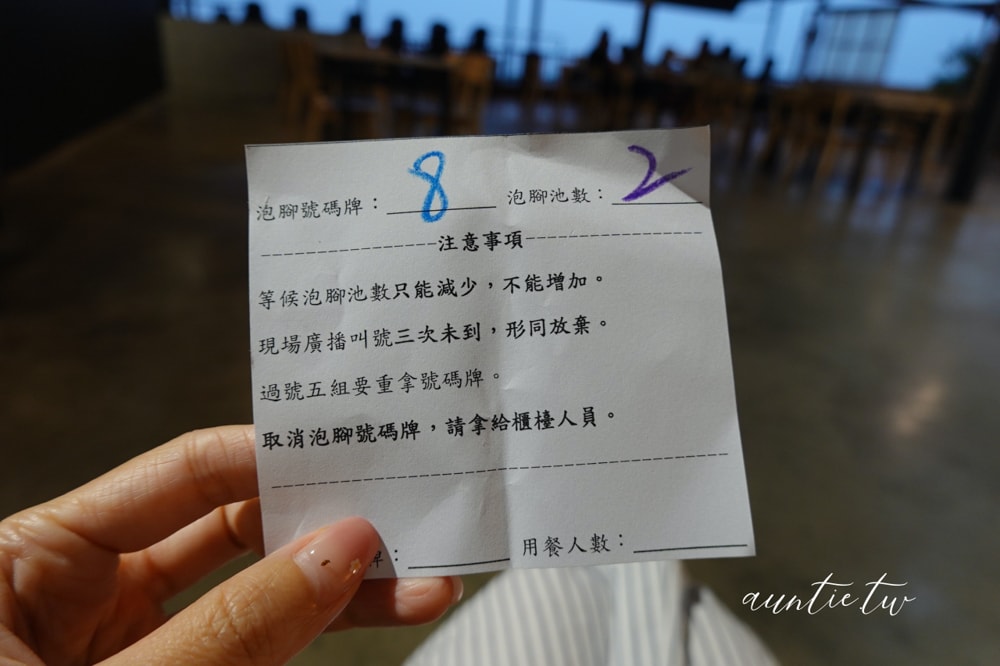 泡腳號碼牌：8 泡腳池數：2
注意事項
等候泡腳池數只能減少，不能增加。
現場廣播叫號三次未到，形同放棄。
過號五組要重拿號碼牌。
取消泡腳號碼牌，請拿給櫃檯人員。
牌： 用餐人數：
auntie tw